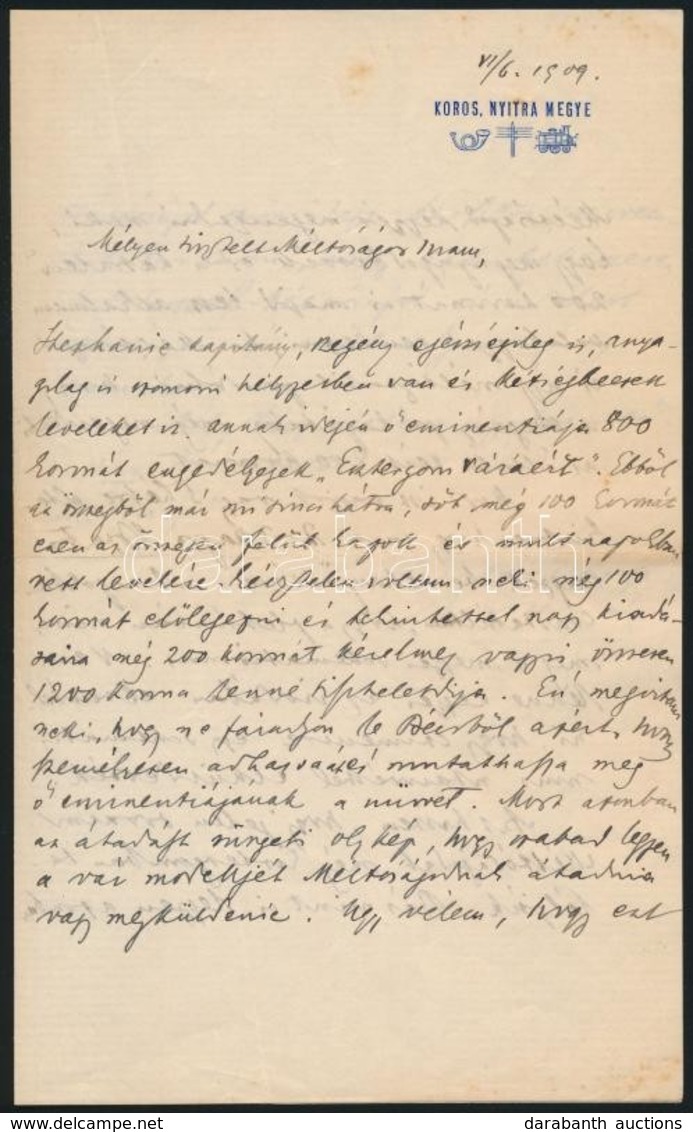 VI/6. 1909.
KOROS, NYITRA MEGYE
Mélyen tisztelt Méltóságos Uram,
Stephanie kapitány, szegény egészségileg is, anya-
gilag is szomorú helyzetben van és kétségbeesett
leveleket ir. annak idején ő eminentiája 800
koronát engedélyezett „Esztergom váráért". Ebből
az összegből már nincs hátra, sőt még 100 koronát
ezen az összegen felül kapott és mult napokban
vett levelére kénytelen voltam neki még 100
koronát előlegezni és tekintettel nagy kiadá-
saira még 200 koronát kérelmez vagyis összesen
1200 korona lenne tiszteletdija. Én megirtam
neki, hogy ne fáradjon le Bécsből azért, hogy
személyesen adhassa át és mutathassa meg
ő eminentiájának a művet. Most azonban
az átadást sürgeti oly kép, hogy szabad legyen
a vár modelljét Méltóságodnak átadnia
vagy megküldenie. Ugy vélem, hogy ezt
darabanth
darabanth auctions